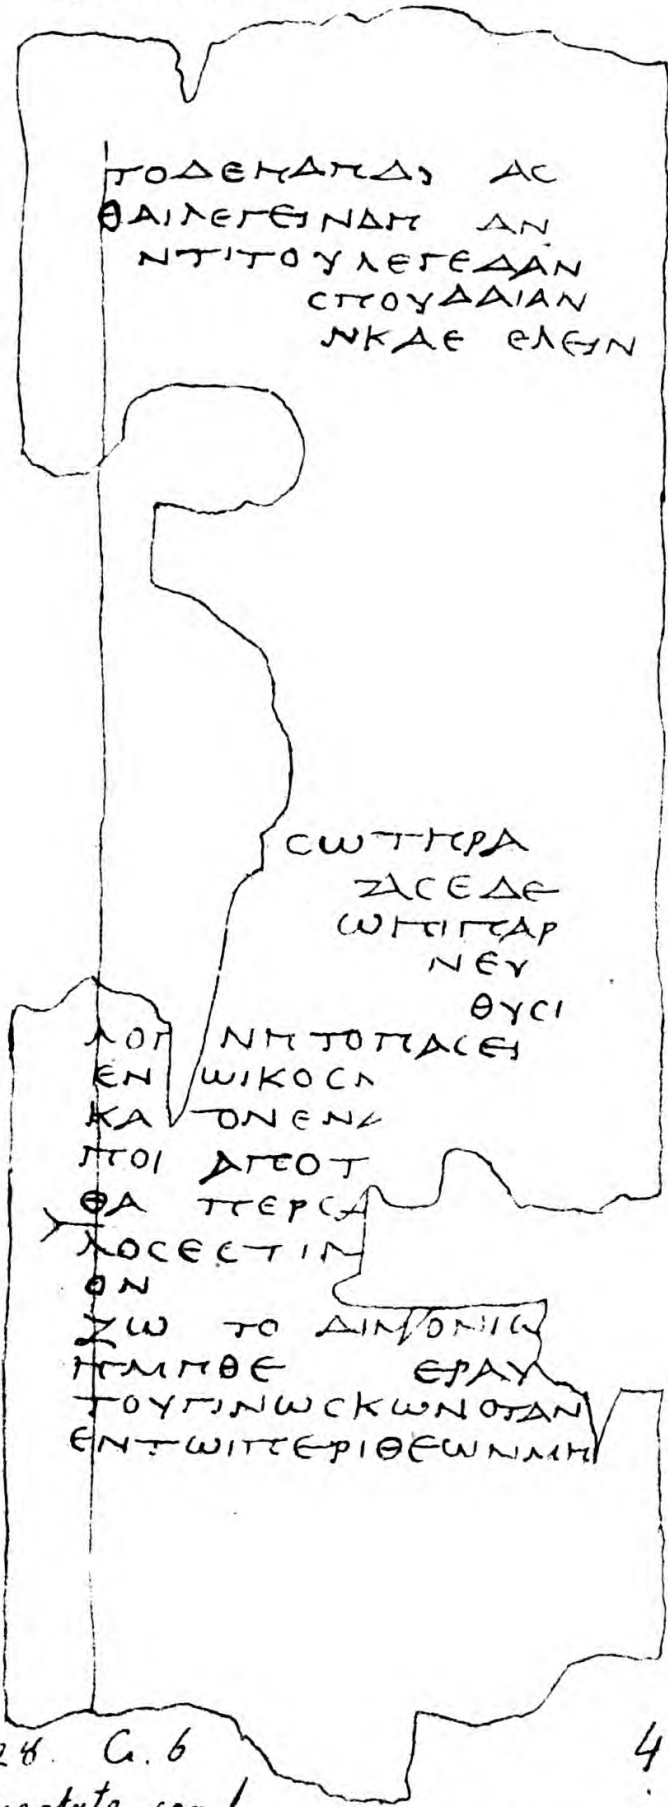 ΤΟΔΕΗΔΗΔΙ ΑС
ΘΑΙΛΕΓΕΙΝΔΗ ΑΝ
ΝΤΙΤΟΥΛΕΓΕΔΑΝ
СΠΟΥΔΑΙΑΝ
ΝΚΑΕ ΕΛΕΙΝ
СΩΤΗΡΑ
ΖΑСΕΔΕ
ΩΠΙΠΑΡ
ΝΕΥ
ΘΥСΙ
ΛΟΓ ΝΗΤΟΠΑСΕΙ
ΕΝ ΩΙΚΟС
ΚΑ ΤΟΝΕΝ
ΠΟΙ ΑΠΟΤ
ΘΑ ΠΕΡСΑ
ΛΟСΕСΤΙΝ
ΟΝ
ΖΩ ΤΟ ΔΙΜΟΝΙΩ
ΗΜΗΘΕ ΕΡΑΥ
ΤΟΥΓΙΝΩСΚΩΝΟΤΑΝ
ΕΝΤΩΙΠΕΡΙΘΕΩΝΜΗ
28. G. 6 4